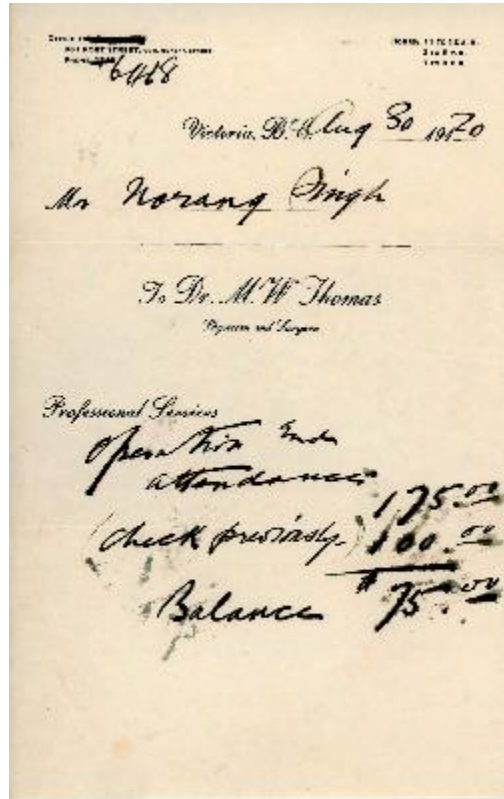 6468
Victoria, B.C. Aug 30 1920
Mr Norang Singh
To Dr. M. W. Thomas
Physician and Surgeon
Professional Services
Operation and
attendance 175.00
(check previously) 100.00
Balance $75.00